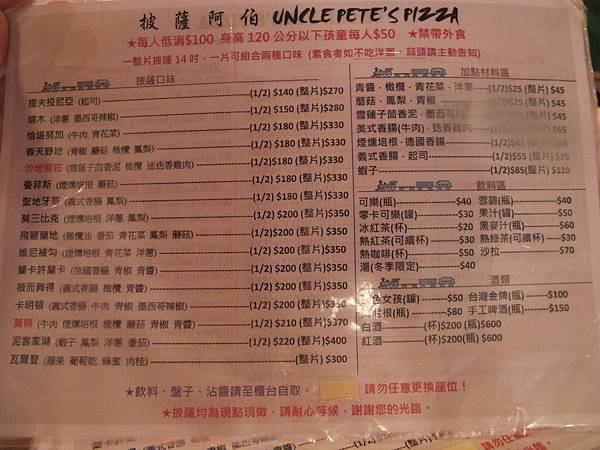 披薩阿伯 UNCLE PETE'S PIZZA
★每人低消$100 身高120公分以下孩童每人$50 ★禁帶外食
一整片披薩14吋，一片可組合兩種口味 (素食者如不吃洋蔥、蒜頭請主動告知)
披薩口味
提夫投尼亞 (起司) (1/2) $140 (整片)$270
燒木 (洋蔥 墨西哥辣椒) (1/2) $150 (整片) $280
恰塔努加 (牛肉 青花菜) (1/2) $180 (整片) $330
春天野地 (青椒 蘑菇 橄欖 鳳梨) (1/2) $180 (整片) $330
沙地菊花 (雪蓮子茴香泥 橄欖 迷迭香雞肉) (1/2)$180 (整片) $330
曼菲斯 (煙燻培根 蘑菇) (1/2) $180 (整片) $330
聖地牙哥 (義式香腸 鳳梨) (1/2) $180 (整片) $330
莫三比克 (煙燻培根 洋蔥 鳳梨) (1/2) $200 (整片) $350
飛麗蘭地 (橄欖油 番茄 青花菜 鳳梨 蘑菇) (1/2) $200 (整片) $350
維尼被勾 (煙燻培根 青花菜 洋蔥) (1/2) $200 (整片) $350
蘭卡許蘭卡 (德國香腸 青椒 青醬) (1/2) $200 (整片) $350
薇而舞得 (義式香腸 橄欖 青醬) (1/2) $200 (整片) $350
卡明頓 (義式香腸 牛肉 青椒 墨西哥辣椒) (1/2) $200 (整片) $350
莫頓 (牛肉 煙燻培根 橄欖 蘑菇 青椒 青醬) (1/2) $210 (整片) $370
泥客家湖 (蝦子 鳳梨 洋蔥 番茄) (1/2) $220 (整片)$400
瓦爾登 (蘋果 葡萄乾 蜂蜜 肉桂) (整片) $300
加點材料區
青醬、橄欖、青花菜、洋蔥 (1/2)$25 (整片) $45
蘑菇、鳳梨、青椒 (整片) $45
雪蓮子茴香泥、墨西哥辣椒 $45
美式香腸(牛肉)、迷迭香雞肉 $65
煙燻培根、德國香腸 $65
義式香腸、起司 (1/2)$55 (整片) $75
蝦子 (1/2)$85(整片) $110
飲料區
可樂(瓶) $40 雪碧(瓶) $40
零卡可樂(罐) $30 果汁(罐) $50
冰紅茶(瓶) $20 黑麥汁(瓶) $60
熱紅茶(可續杯) $30 熱綠茶(可續杯) $30
熱咖啡(杯) $50 沙拉 $70
湯(冬季限定) $40
酒類
色女孩(罐) $50 台灣金牌(瓶) $100
根(瓶) $80 手工啤酒(瓶) $150
白酒 (杯)$200 (瓶) $600
紅酒 (杯)$200(瓶) $600
★飲料、盤子、沾醬請至櫃台自取。 請勿任意更換座位！
★披薩均為現點現做，請耐心等候，謝謝您的光臨。